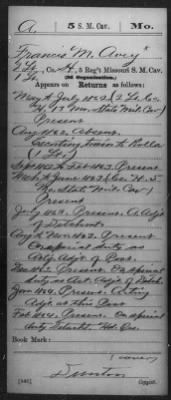 A. 5 S. M. Cav. Mo.
Francis M. Avey
2 Lt., Co. H, 5 Reg't Missouri S. M. Cav.
(2d Organization.)
Appears on
Returns as follows:
May & July 1862 (2 Lt. Co.
H 13 Mo. State Mil. Cav)
Present
Aug 1862. Absent.
Escorting train to Rolla
(1 Lt.)
Sept 1862 to Feb 1863. Present
Mch & June 1863 (Co. H. 5
Mo. State Mil. Cav)
Present
July 1863. Present. A. Adjt
of Detchmt.
Aug to Nov 1863. Present
On special duty as
Adjt. of Post.
Dec 1863. Present. On special
duty as Act. Adjt. of Detch.
Jan 1864. Present. Acting
Adjt. at this Post
Feb 1864. Present. On special
duty
Book Mark:
(over)
Dunton
(546) Copyist.